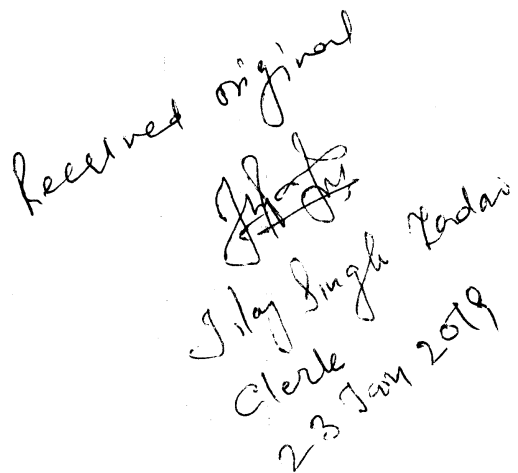 Received original
Singh Yadav
Clerk
23 Jan 2019